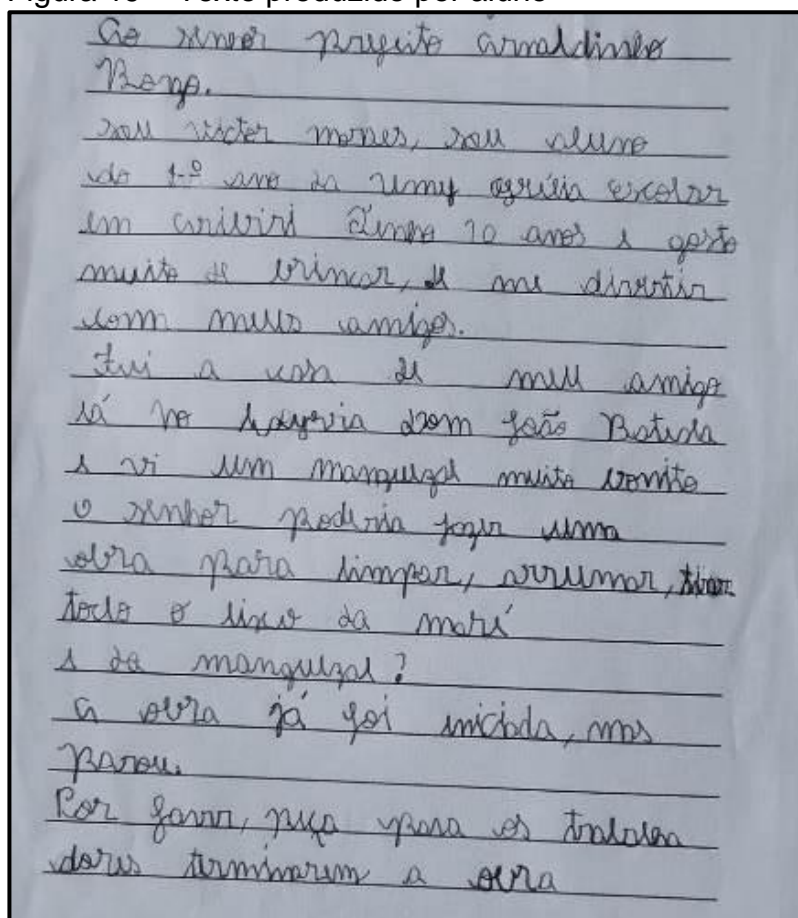 Ao senhor prefeito arnaldinho
Borgo.
sou victor moraes, sou aluno
do 4º ano da umef escolar
em Tenho 10 anos e gosto
muito de brincar, de me divertir
com meus amigos.
Fui a casa de meu amigo
lá no Dom João Batista
e vi um manguezal muito bonito
o senhor poderia fazer uma
obra para limpar, arrumar, tirar
todo o lixo da maré
e do manguezal?
a obra já foi iniciada, mas
parou.
Por favor, peça para os trabalha
dores terminarem a obra